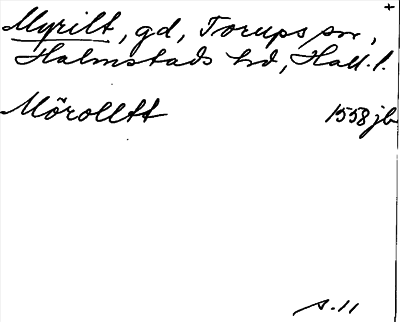 +
Myrilt, gd, Torups sn,
Halmstads hd, Hall. l.
Mörolltt 1558 jb
s. 11